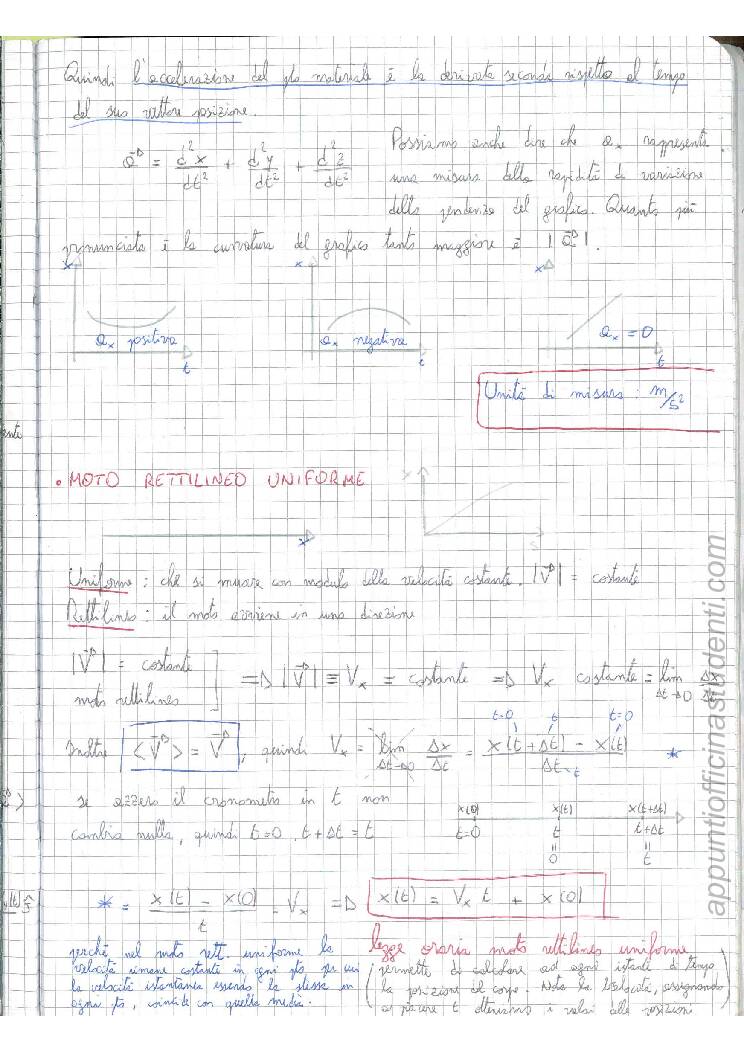 Quindi l'accelerazione del pto materiale è la derivata seconda rispetto al tempo
del suo vettore posizione.
a = d²x/dt² + d²y/dt² + d²z/dt²
Possiamo anche dire che aₓ rappresenta
una misura della rapidità di variazione
della pendenza del grafico. Quanto più
pronunciata è la curvatura del grafico tanto maggiore è |a|.
x x x
aₓ positiva aₓ negativa aₓ = 0
t t t
Unità di misura: m/s²
• MOTO RETTILINEO UNIFORME
x
Uniforme: che si muove con modulo della velocità costante. |V| = costante
Rettilineo: il moto avviene in una direzione
|V| = costante
moto rettilineo
=> |V| ≡ Vₓ = costante => Vₓ costante = lim Δt→0 Δx/Δt
Inoltre <V> = V, quindi Vₓ = lim Δt→0 Δx/Δt = x(t+Δt) - x(t) / Δt *
t=0 t t=0
se azzero il cronometro in t non
cambia nulla, quindi t=0, t+Δt = t
x(0) x(t) x(t+Δt)
t=0 t t+Δt
= =
0 t
* = x(t) - x(0) / t = Vₓ => x(t) = Vₓ t + x(0)
perché nel moto rett. uniforme la
velocità rimane costante in ogni pto per cui
la velocità istantanea essendo la stessa in
ogni pto, coincide con quella media.
legge oraria moto rettilineo uniforme
(permette di calcolare ad ogni istante di tempo
la posizione del corpo. Nota la velocità, assegnando
a piacere t otteniamo i valori delle posizioni)
appuntiofficinastudenti.com